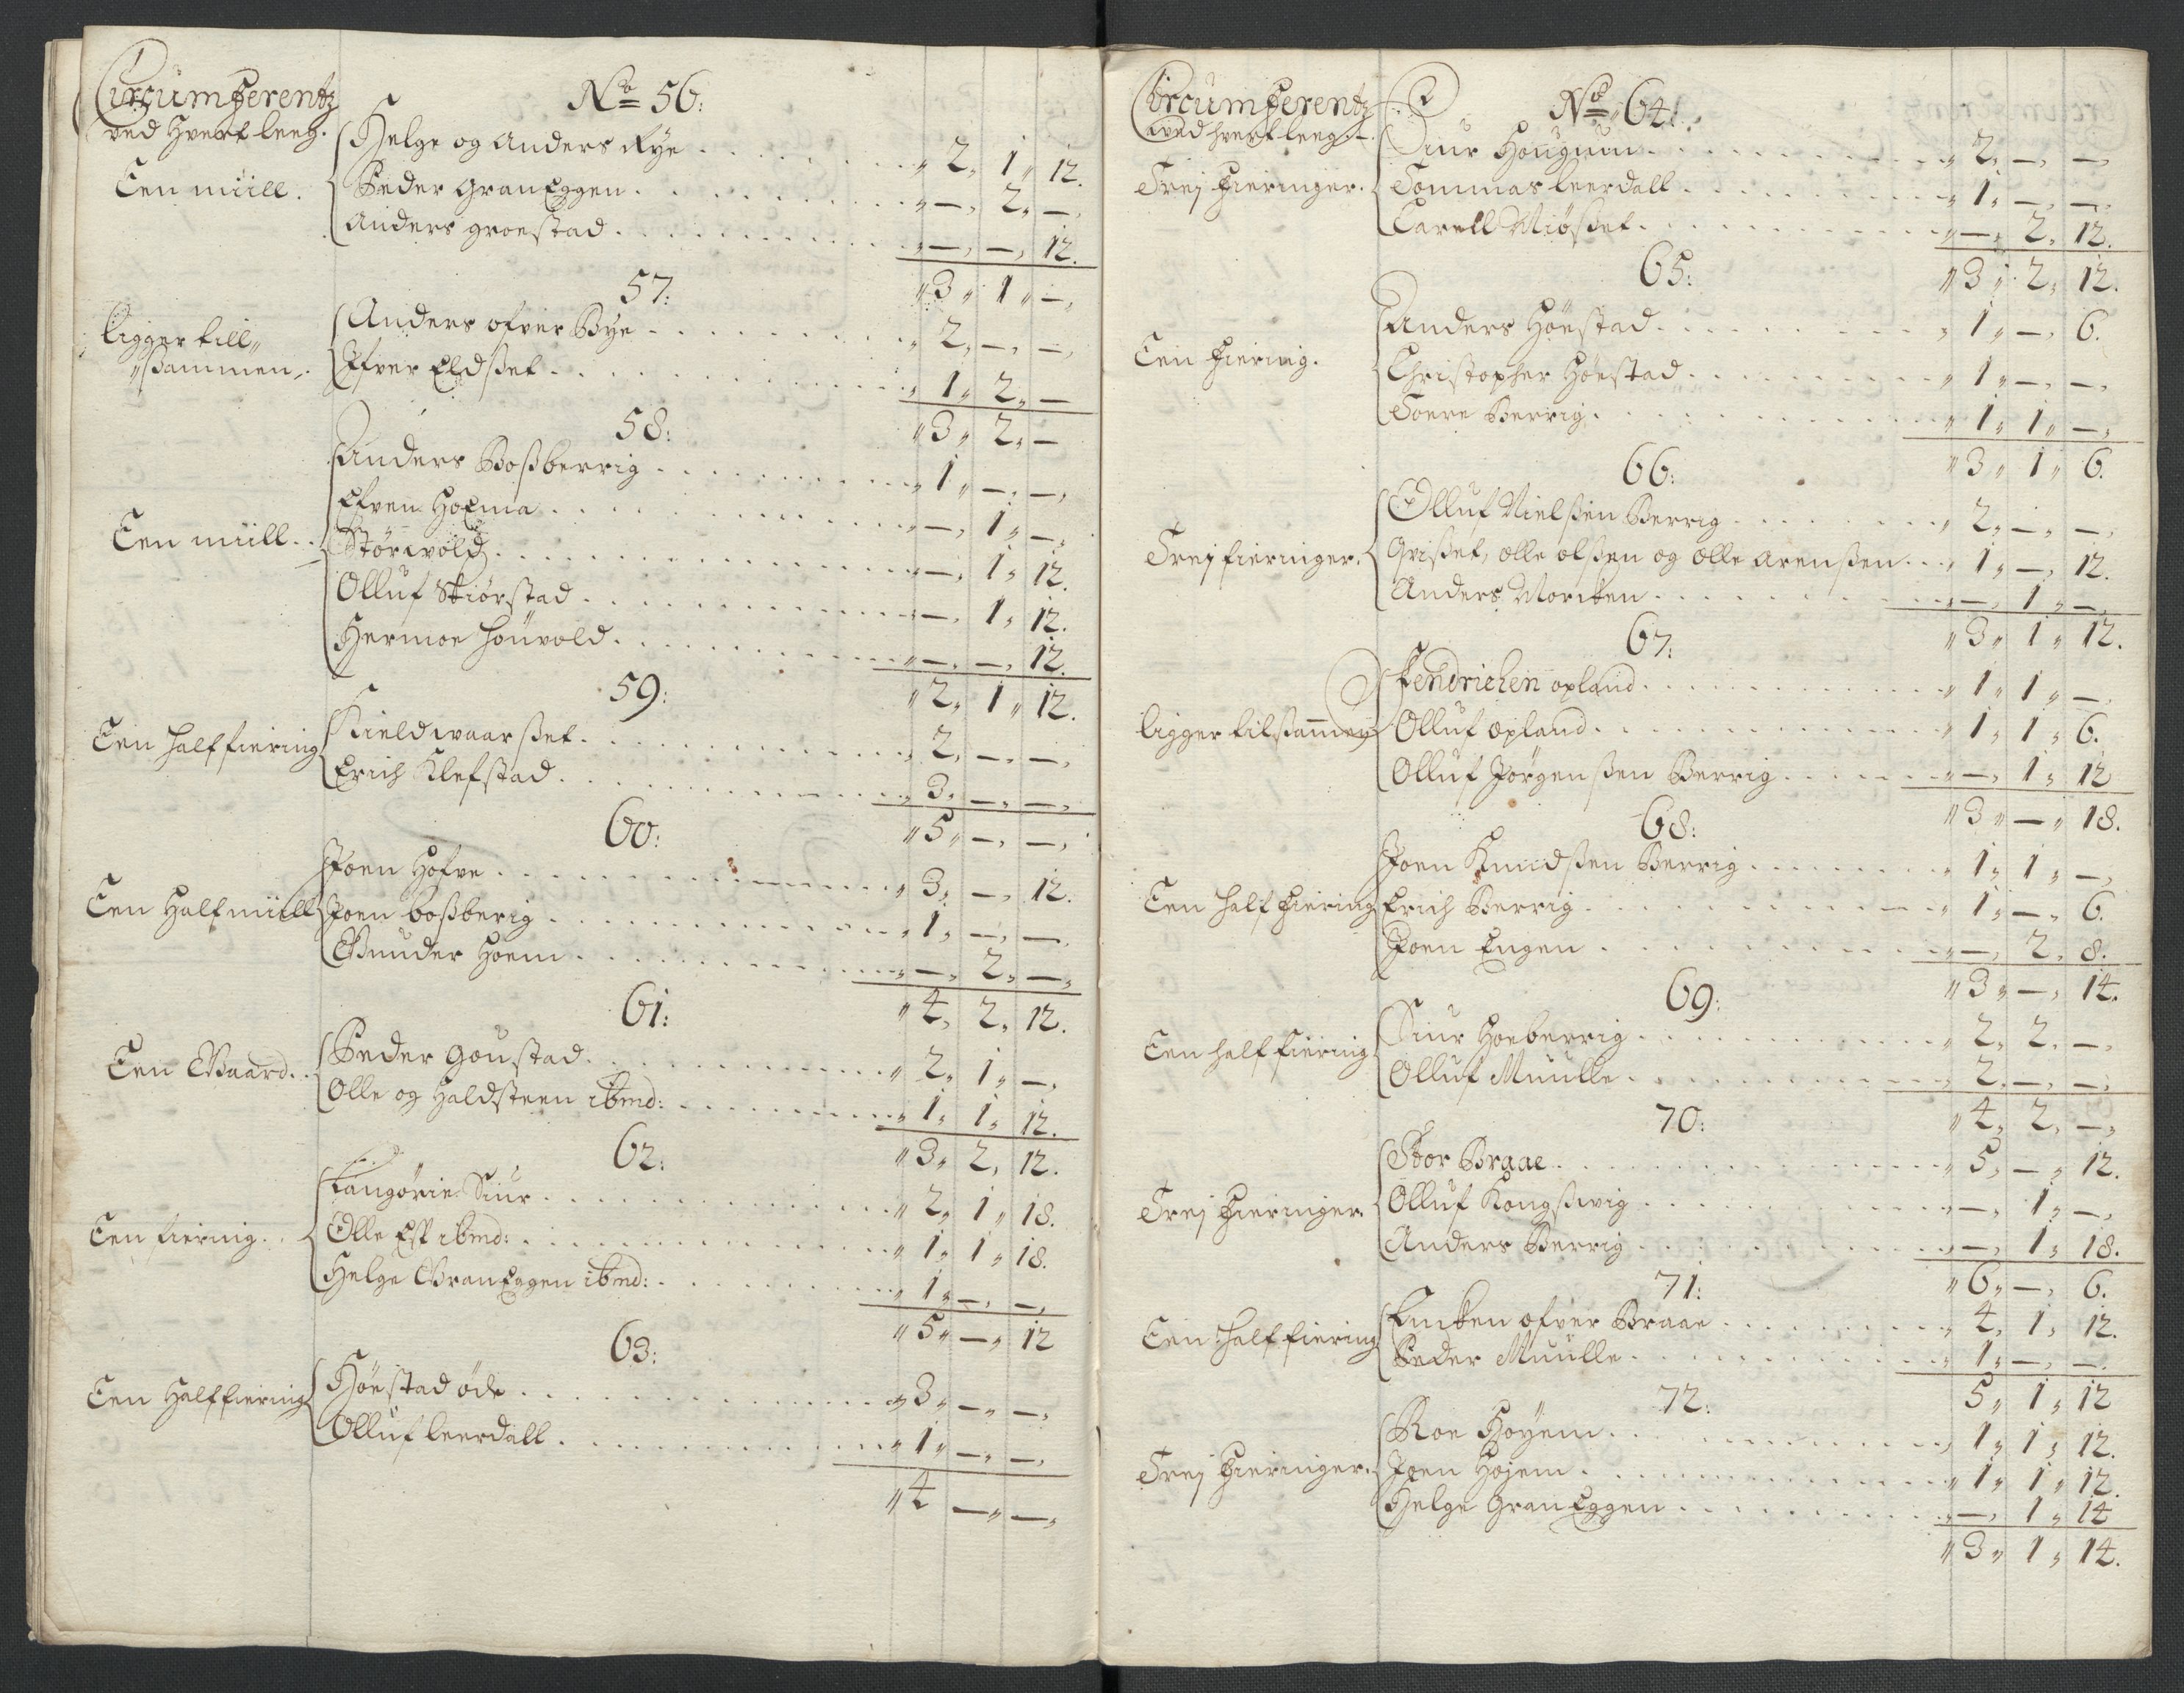 Circumferentz
ved hverf leeg.
No 56:
Een miill.
Helge og Anders Rye . . . " 2, 1, 12.
Peder Graneggen . . . " —, 2, —,
Anders Groestad . . . " —, —, 12.
" 3, 1, —,
57:
ligger till"
"sammen,.
Anders ofver Bye . . . " 2, —, —,
Ifver Eldsset . . . " 1, 2, —
" 3, 2, —
58:
Een miill.
Anders Bossberrig . . . " 1, —, —,
Efven Hoema . . . " —, 1, —,
Störwold . . . " —, 1, 12.
Olluf Skiörstad . . . " —, 1, 12.
Hermoe Houvold . . . " —, —, 12.
" 2, 1, 12.
59:
Een half fiering
Kield waarsset . . . " 2, —, —,
Erich Klefstad . . . " 3, —, —,
" 5, —, —,
60:
Een Half miill
Joen Hofve . . . " 3, —, 12.
Joen bossberig . . . " 1, —, —,
Gunder Hoem . . . " —, 2, —,
" 4, 2, 12.
61:
Een Gaard.
Peder Goustad . . . " 2, 1, —,
Olle og Haldsteen ibmd: . . . " 1, 1, 12.
" 3, 2, 12.
62:
Een fiering.
Langörie Siur . . . " 2, 1, 18.
Olle Esp ibmd: . . . " 1, 1, 18.
Helge Graneggen ibmd: . . . " 1, —, —,
" 5, —, 12
63:
Een Half fiering
Höestad öde . . . " 3, —, —,
Olluf leerdall . . . " 1, —, —,
" 4 —, —,
Circumferentz
ved hverf leeg.
No 64:
Trej fieringer.
Siur Hougum . . . " 2, —, —,
Tommas leerdall . . . " 1, —, —,
Carell Miösset . . . " —, 2, 12.
" 3, 2, 12.
65:
Een fiering.
Anders Höestad . . . " 1, —, 6.
Christopher Höestad . . . " 1, —, —,
Toere Berrig . . . " 1, 1, —,
" 3, 1, 6.
66:
Trej fieringer.
Olluf Nielssen Berrig . . . " 2, —, —,
Qvisset, olle olssen og olle arenssen . . . " 1, —, 12.
Anders Morcken . . . " —, 1, —,
" 3, 1, 12.
67:
ligger tilsammen
Fendrichen opland . . . " 1, 1, —,
Olluf opland . . . " 1, 1, 6.
Olluf Jörgenssen Berrig . . . " —, 1, 12
" 3, —, 18.
68:
Een half fiering
Joen Knudssen Berrig . . . " 1, 1, —,
Erich Berrig . . . " 1, —, 6.
Joen Engen . . . " —, 2, 8.
" 3, —, 14.
69:
Een half fiering
Siur Hoeberrig . . . " 2, 2, —,
Olluf Muulle . . . " 2, —, —,
" 4, 2, —,
70:
Trej fieringer.
Stor Braae . . . " 5, —, 12.
Olluf Kongsswig . . . " —, 1, —,
Anders Berrig . . . " —, 1, 18.
" 6, —, 6.
71:
Een half fiering
Encken ofver Braae . . . " 4, 1, 12.
Peder Muulle . . . " 1, —, —.
5, 1, 12
72:
Trej fieringer.
Roe Höyem . . . " 1, 1, 12.
Joen Hojem . . . " 1, 1, 12.
Helge Graneggen . . . " —, 1, 14
" 3, 1, 14.